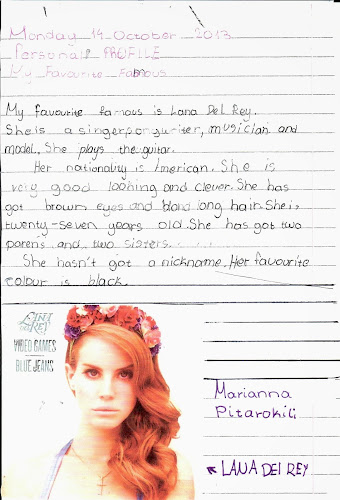 Monday 14 October 2013
Personal PROFILE
My Favourite Famous
My favourite famous is Lana Del Rey.
She is a singer, songwriter, musician and
model. She plays the guitar.
Her nationality is American. She is
very good looking and clever. She has
got brown eyes and blond long hair. She is
twenty-seven years old. She has got two
parens and two sisters.
She hasn't got a nickname. Her favourite
colour is black.
LANA
DEL REY
VIDEO GAMES
BLUE JEANS
Marianna
Pitarokili
LANA DEl REY